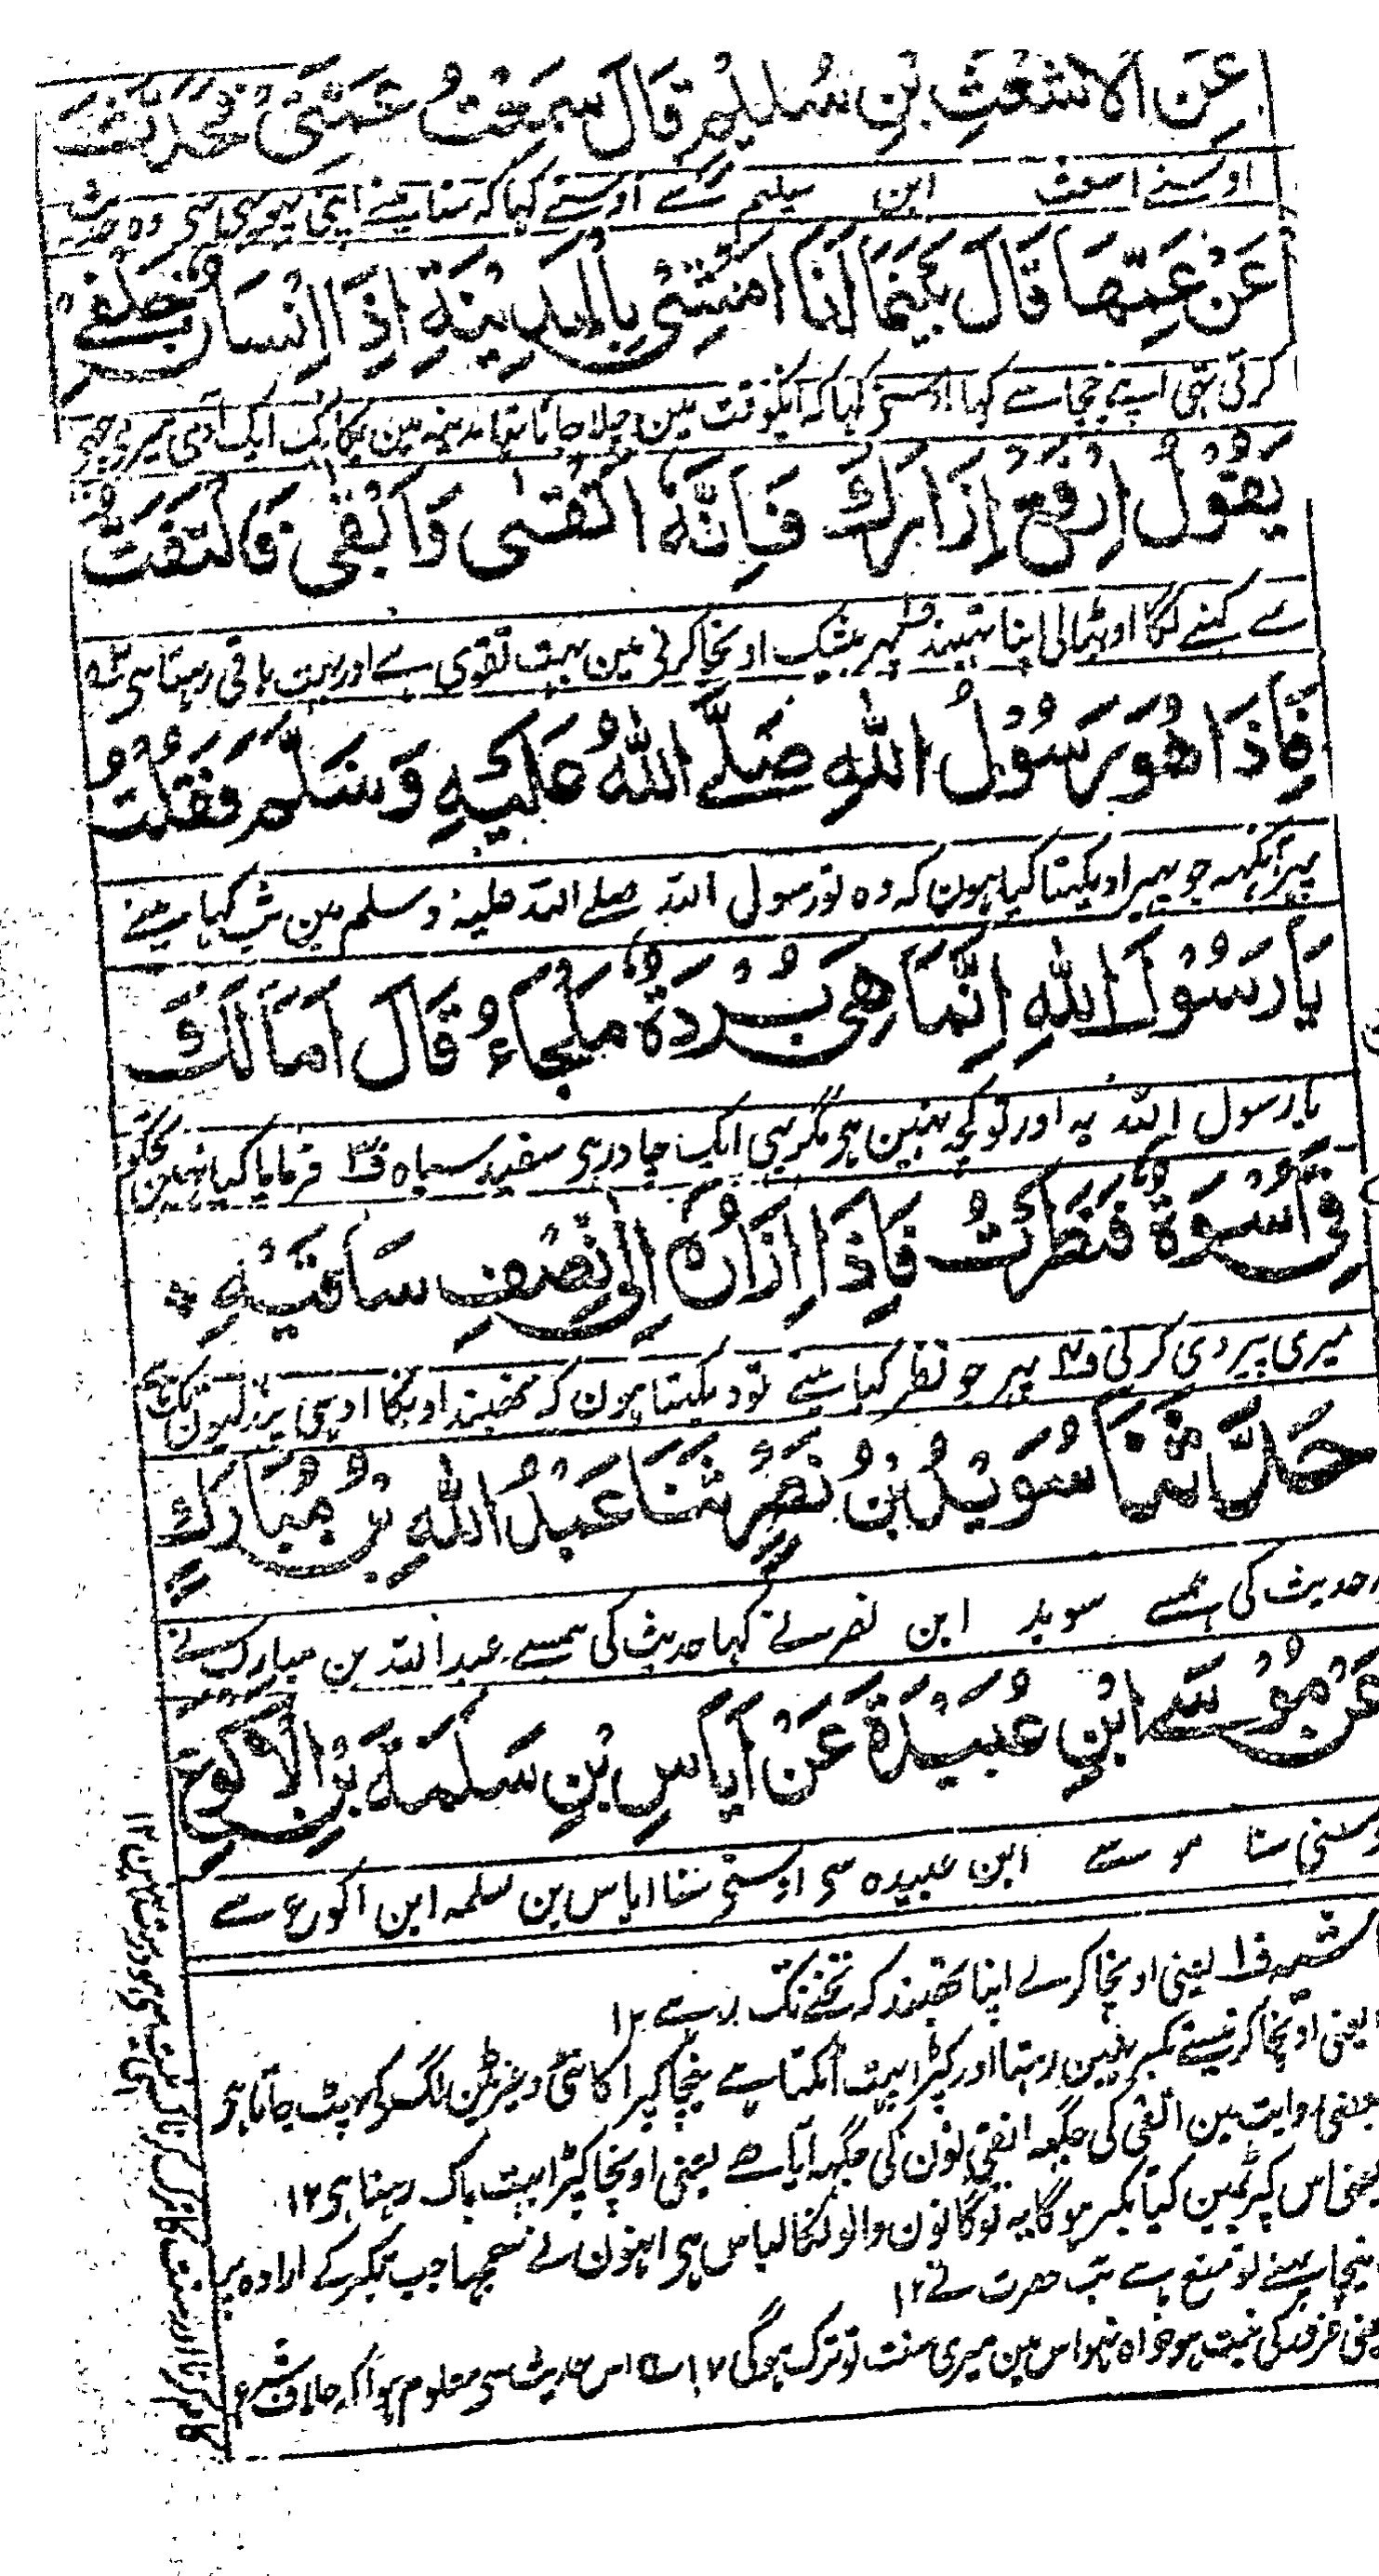 عَنِ الْاَشْعَثِ بْنِ سُلَيْمٍ قَالَ سَمِعْتُ عَمَّتِيْ تُحَدِّثُ
اوسنے اشعث ابن سلیم سے اوسنے کہا کہ سنا مینے اپنی پہوپہی سی وہ حدیث
عَنْ عَمِّهَا قَالَ بَيْنَمَا اَنَا اَمْشِيْ بِالْمَدِيْنَةِ اِذَا اِنْسَانٌ خَلْفِيْ
کرتی تہی اپنے چچا سے کہا اوسنی کہا کہ ایکوقت مین چلا جاتا تہا مدینہ مین یکایک ایک آدمی میری پیچہی
يَقُوْلُ اِرْفَعْ اِزَارَكَ فَاِنَّهٗ اَتْقٰى وَاَبْقٰى فَالْتَفَتُّ
سے کہنے لگا اوٹہالی اپنا تہبند ف۱ پہر بیشک اونچا کرنی مین بہت تقوی ہے اور بہت باقی رہتا ہی ف۲
فَاِذَا هُوَ رَسُوْلُ اللّٰهِ صَلَّے اللّٰهُ عَلَيْهِ وَسَلَّمَ فَقُلْتُ
پہر آنکہہ جو پہیرا دیکہتا کیا ہون کہ وہ تو رسول اللہ صلے اللہ علیہ وسلم ہین تب کہا مینے
يَا رَسُوْلَ اللّٰهِ اِنَّمَا هِيَ بُرْدَةٌ مَلْحَاءُ قَالَ اَمَا لَكَ
یا رسول اللہ یہ اور تو کچہہ نہین ہی مگر یہی ایک چادر ہی سفید سیاہ ف۳ فرمایا کیا نہین تجکو
فِيَّ اُسْوَةٌ فَنَظَرْتُ فَاِذَا اِزَارُهٗ اِلٰى نِصْفِ سَاقَيْهِ *
میری پیروی کرنی ف۴ پہر جو نظر کیا مینے تو دیکہتا ہون کہ تہبند اونکا ادہی پنڈلیون تک ہے
حَدَّثَنَا سُوَيْدُ بْنُ نَصْرٍ ثَنَا عَبْدُ اللّٰهِ بْنُ مُبَارَكٍ
حدیث کی ہمسے سوید ابن نصر نے کہا حدیث کی ہمسے عبد اللہ بن مبارک نے
عَنْ مُوْسٰے ابْنِ عُبَيْدَةَ عَنْ اَيَاسِ بْنِ سَلَمَةَ بْنِ الْاَكْوَعِ
اوسنی سنا موسے ابن عبیدہ سی اوسنی سنا ایاس بن سلمہ ابن اکورع سے
ف۱ یعنی اونچا کر لے اپنا تہبند کہ ٹخنے تک رہے ۱۲
یعنی اونچا کرنیسے تکبر نہین رہتا اور کپڑا بہت ٹکتا ہے نیچا کپڑا کانٹی وغیرہ مین لگ کر پہٹ جاتا ہی
بعضی روایت مین اتقی کی جگہہ انقی نون کی جگہہ آیا ہے یعنی اونچا کپڑا بہت پاک رہتا ہی ۱۲
یعنی اس کپڑیمین کیا تکبر ہوگا یہ تو گانون والونکا لباس ہی اونہون نے سمجہا جب تکبر کے ارادہ پر
نیچا پہنے تو منع ہے تب حضرت نے ۱۲
یعنی غرور کی نیت ہو خواہ نہو اس مین میری سنت تو ترک ہوگی ۱۲ اس حدیث سی معلوم ہوا کہ خلاف شرع